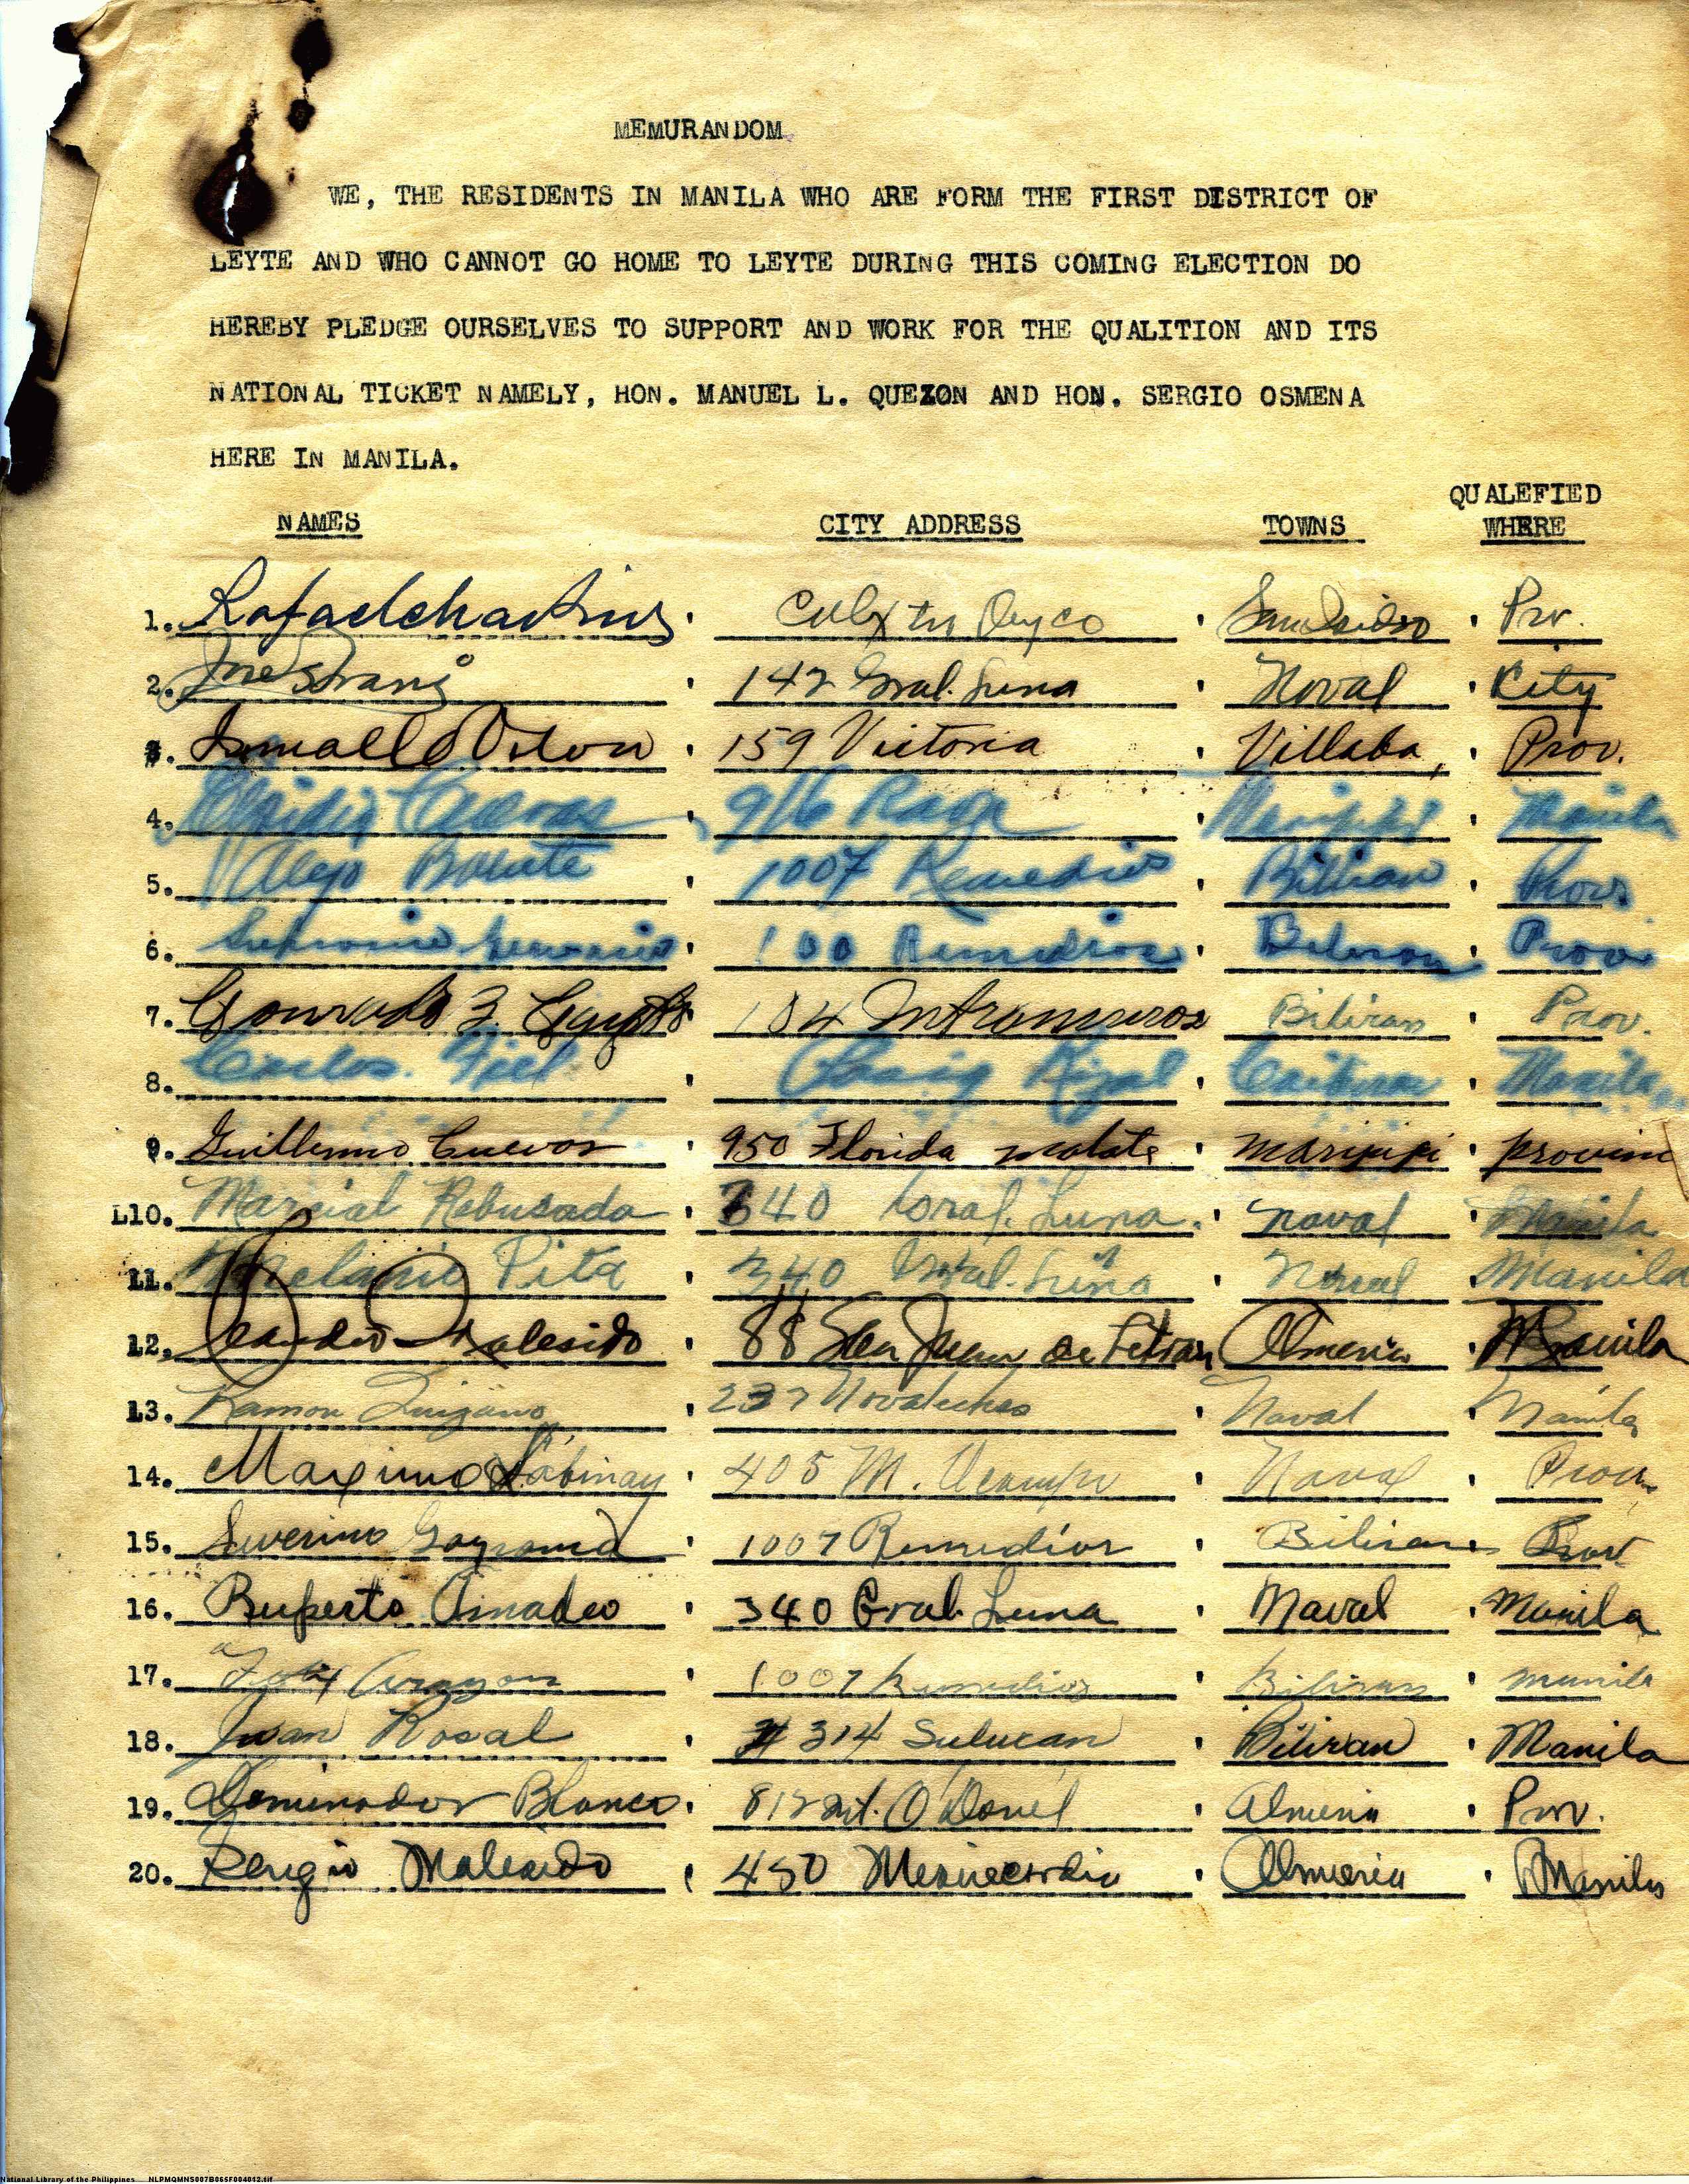 MEMURANDOM
WE, THE RESIDENTS IN MANILA WHO ARE FORM THE FIRST DISTRICT OF
LEYTE AND WHO CANNOT GO HOME TO LEYTE DURING THIS COMING ELECTION DO
HEREBY PLEDGE OURSELVES TO SUPPORT AND WORK FOR THE QUALITION AND ITS
NATIONAL TICKET NAMELY, HON. MANUEL L. QUEZON AND HON. SERGIO OSMENA
HERE IN MANILA.
NAMES CITY ADDRESS TOWNS QUALEFIED WHERE
1. Prov.
2. 142 Gral. Luna Naval City
3. 159 Victoria Villaba, Prov.
4. 916 Maripipi Manila
5. Alejo 1007 Remedios Biliran Prov.
6. Remedios Biliran Prov
7. 184 Intramuros Biliran Prov.
8. Carlos Pasig Rizal Caibiran Manila
9. Guillermo Cuevas 950 Florida malate maripipi province
10. Marcial Rebusada 340 Gral. Luna. naval Manila
11. Melanio Pita 340 Gral. Luna Naval Manila
12. 88 San Juan de Letran Almeria Manila
13. Ramon Quijano 237 Naval Manila
14. Maximo Sabinay 405 M. Ocampo Naval Prov.
15. Severino 1007 Remedios Biliran Prov
16. Ruperto Amadeo 340 Gral. Luna Naval Manila
17. 1007 Remedios Biliran manila
18. Juan Rosal # 314 Sulucan Biliran Manila
19. Dominador Blanco 812 Int. O'Donel Almeria Prov.
20. 450 Misericordia Almeria Manila
National Library of the Philippines NLPMQMNS007B065F004012.tif